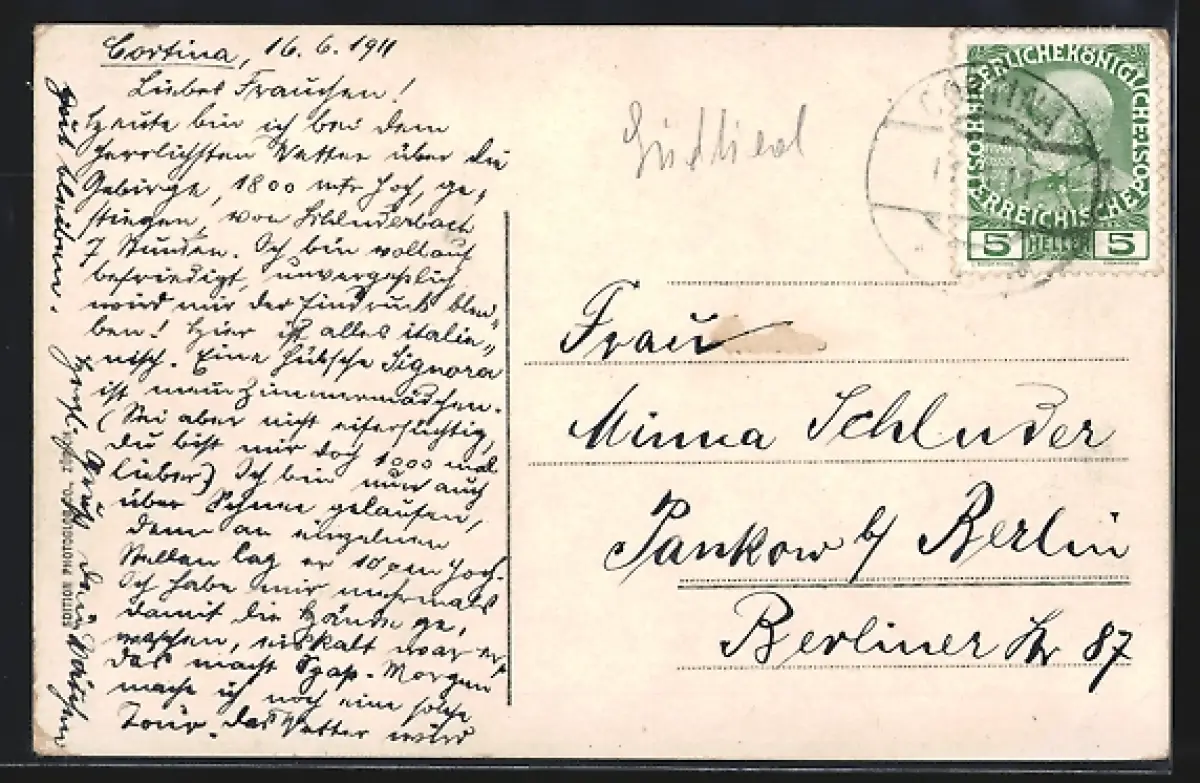 Cortina, 16. 6. 1911
Liebes Frauchen!
Heute bin ich bei dem
herrlichsten Wetter über die
Gebirge, 1800 mtr hoch, ge„
stiegen, von Schluderbach
7 Stunden. Ich bin vollauf
befriedigt, unvergeßlich
wird mir der Eindruck blei„
ben! Hier ist alles italie„
nisch. Eine hübsche Signora
ist mein Zimmermädchen.
(Sei aber nicht eifersüchtig,
Du bist mir doch 1000 mal
lieber) Ich bin nun auch
über Schnee gelaufen,
denn an einzelnen
Stellen lag er hoch.
Ich habe mir mehrmals
damit die Hände ge„
waschen, eiskalt war er,
das macht Spaß. Morgen
mache ich noch eine solche
Tour. Das Wetter wird
gut bleiben.
Herzl. Gruß Dein
Südtirol
CORTINA
KAISERLICHEKÖNIGLICHE
ÖSTERREICHISCHE
5 HELLER 5
Frau
Minna Schluder
Pankow b/ Berlin
Berliner Str 87